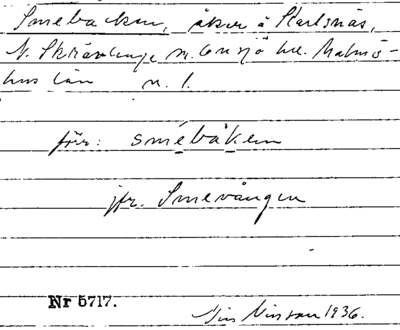 Smebacken, åker å Karlsnäs,
N. Skrävlinge sn. Onsjö hd. Malmö-
hus län n. 1.
för: smébàken
jfr. Smevången
Nr 5717.
Nilsson 1936.